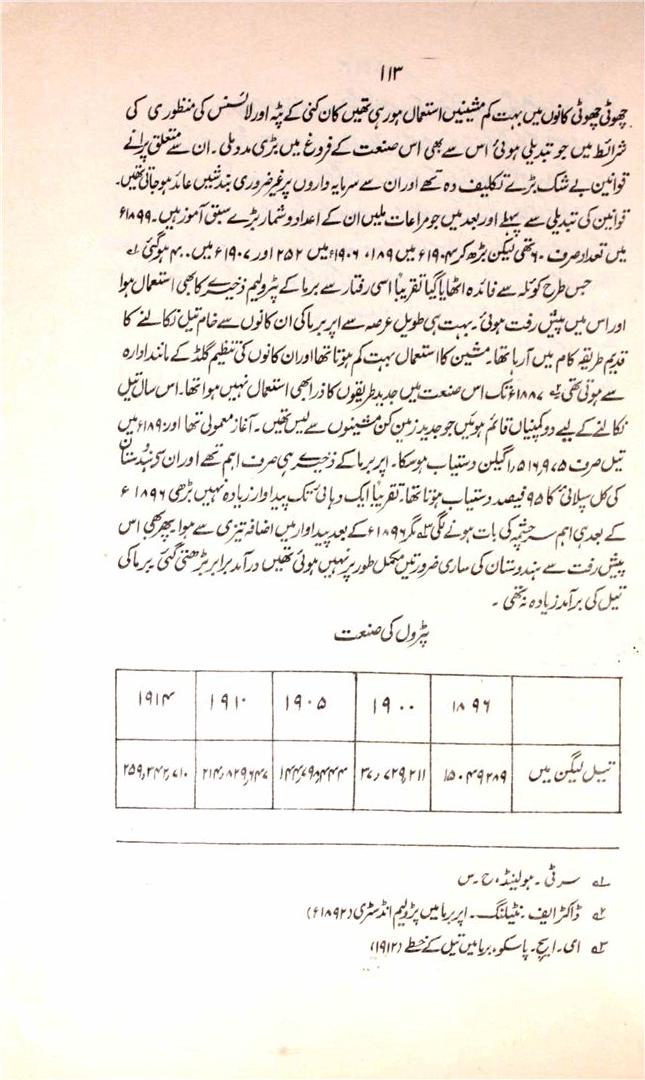 ۱۱۳
چھوٹی چھوٹی کانوں میں بہت کم مشینیں استعمال ہو رہی تھیں کان کنی کے پٹہ اور لائسنس کی منظوری کی
شرائط میں جو تبدیلی ہوئی اس سے بھی اس صنعت کے فروغ میں بڑی مدد ملی۔ ان سے متعلق پرانے
قوانین بے شک بڑے تکلیف دہ تھے اور ان سے سرمایہ داروں پر غیر ضروری بندشیں عائد ہو جاتی تھیں۔
قوانین کی تبدیلی سے پہلے اور بعد میں جو مراعات ملیں ان کے اعداد و شمار بڑے سبق آموز ہیں۔ ۱۸۹۹ء
میں تعداد صرف ۶۰ تھی لیکن بڑھ کر ۱۹۰۴ء میں ۱۸۹، ۱۹۰۶ء میں ۲۵۲ اور ۱۹۰۷ء میں ۴۰۰ ہو گئی ۱؎
جس طرح کوئلہ سے فائدہ اٹھایا گیا تقریباً اسی رفتار سے برما کے پٹرولیم ذخیرے کا بھی استعمال ہوا
اور اس میں پیش رفت ہوئی۔ بہت ہی طویل عرصہ سے اپر برما کی ان کانوں سے خام تیل نکالنے کا
قدیم طریقہ کام میں آ رہا تھا۔ مشین کا استعمال بہت کم ہوتا تھا اور ان کانوں کی تنظیم گلڈ کے مانند ادارہ
سے ہوئی تھی ۲؎ ۱۸۸۷ء تک اس صنعت میں جدید طریقوں کا ذرا بھی استعمال نہیں ہوا تھا۔ اس سال تیل
نکالنے کے لیے دو کمپنیاں قائم ہوئیں جو جدید زمین کن مشینوں سے لیس تھیں۔ آغاز معمولی تھا اور ۱۸۹۰ء میں
تیس صرف ۵۱۶،۹۷۵،را گیلن دستیاب ہو سکا۔ اپر برما کے ذخیرے ہی صرف اہم تھے اور ان سے ہندوستان
کی کل سپلائی کا ۹۵ فیصد دستیاب ہوتا تھا۔ تقریباً ایک دہائی تک پیداوار زیادہ نہیں بڑھی ۱۸۹۶ء
کے بعد ہی اہم سرچشمہ کی بات ہونے لگی ۳؎ مگر ۱۸۹۶ء کے بعد پیداوار میں اضافہ تیزی سے ہوا پھر بھی اس
پیش رفت سے ہندوستان کی ساری ضرورتیں مکمل طور پر نہیں ہوئی تھیں درآمد برابر بڑھتی گئی برما کی
تیل کی برآمد زیادہ نہ تھی۔
پٹرول کی صنعت
۱۸۹۶ ۱۹۰۰ ۱۹۰۵ ۱۹۱۰ ۱۹۱۴
تیل گیلن میں ۱۵۰۴۹۲۸۹ ۳۷،۷۲۹،۲۱۱ ۱۴۴،۷۹۸،۴۴۴ ۲۱۴،۸۲۹،۶۴۷ ۲۵۹،۳۴۲،۷۱۰
۱؎ سر ٹی۔ ہولینڈ، ح۔س
۲؎ ڈاکٹر ایف۔ نٹیلنگ۔ اپر برما میں پٹرولیم انڈسٹری (۱۸۹۲ء)
۳؎ ای۔ ایچ۔ پاسکو، برما میں تیل کے خطے (۱۹۱۲)